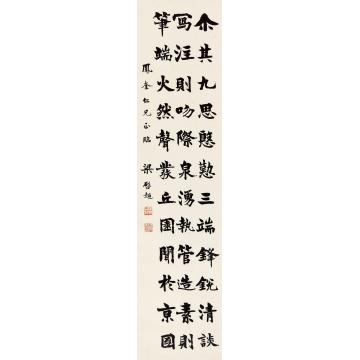 尒其九思慇懃三端鋒銳清談
寫注則吻際泉湧執管造素則
筆端火然聲裝丘園聞於京國
鳳奎仁兄正臨 梁啟超